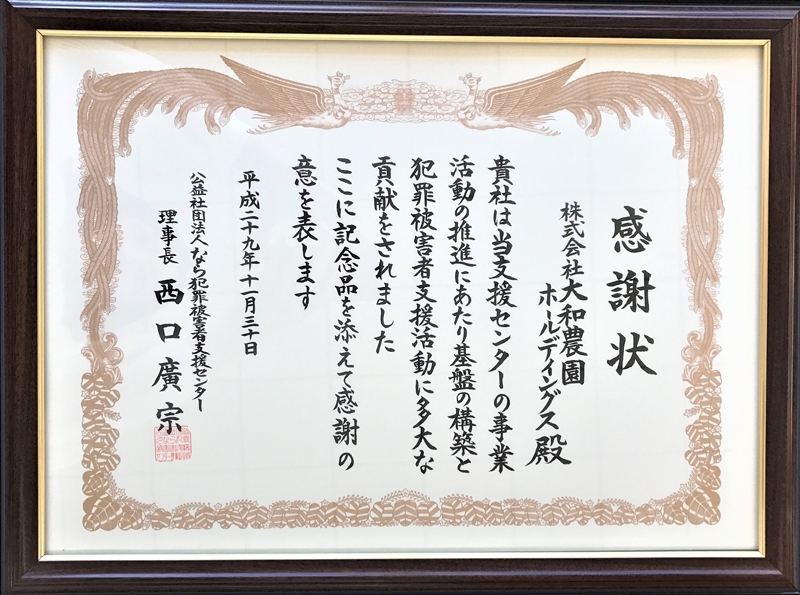 感謝状
株式会社大和農園
ホールディングス殿
貴社は当支援センターの事業
活動の推進にあたり基盤の構築と
犯罪被害者支援活動に多大な
貢献をされました
ここに記念品を添えて感謝の
意を表します
平成二十九年十一月三十日
公益社団法人なら犯罪被害者支援センター
理事長 西口廣宗